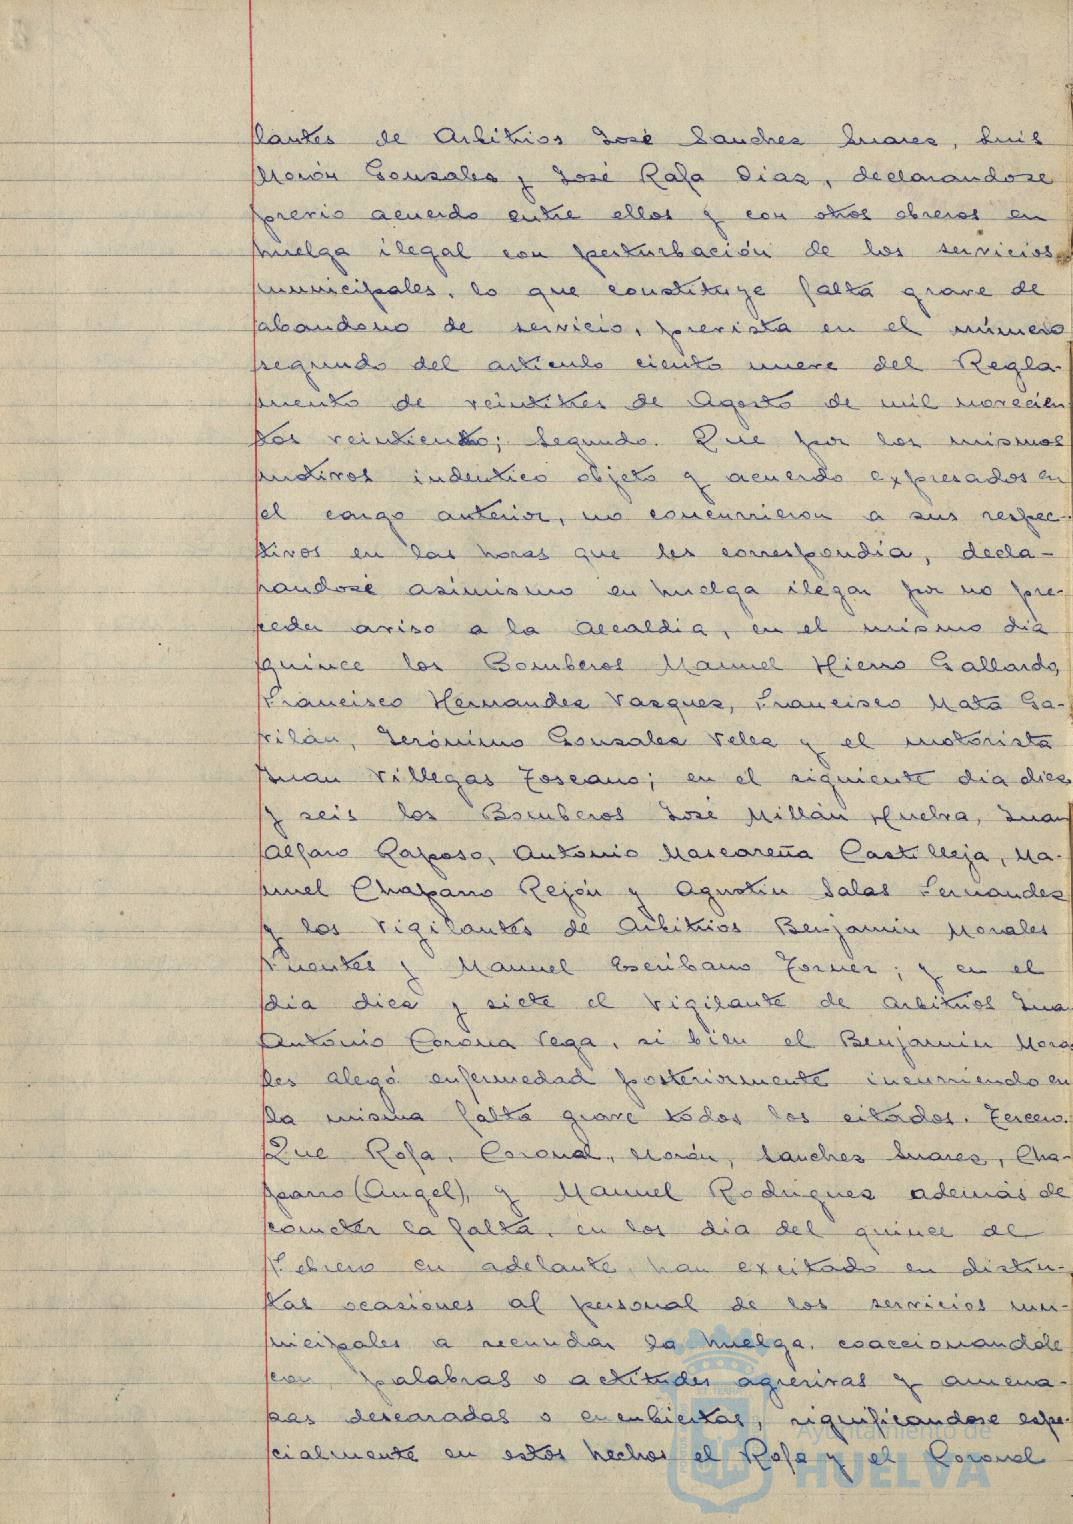 lantes de Arbitrios José Sanchez Suarez, Luis
Morón Gonzalez y José Rofa Diaz, declarandose
previo acuerdo entre ellos y con otros obreros en
huelga ilegal con perturbación de los servicios
municipales, lo que constituye falta grave de
abandono de servicio, prevista en el número
segundo del articulo ciento nueve del Regla-
mento de veintitres de Agosto de mil novecien
tos veinticuatro; Segundo. Que por los mismos
motivos indentico objeto y acuerdo expresados en
el cargo anterior, no concurrieron a sus respec-
tivos en las horas que les correspondia, decla-
randosé asimismo en huelga ilegar por no pre-
ceder aviso a la Alcaldia, en el mismo dia
quince los Bomberos Manuel Hierro Gallardo,
Francisco Hernandez Vazquez, Francisco Mata Ga-
vilán, Jerónimo Gonzalez Velez y el motorista
Juan Villegas Toscano; en el siguiente dia diez
y seis los Bomberos José Millán Huelva, Juan
Alfaro Raposo, Antonio Mascareña Castilleja, Ma-
nuel Chaparro Rejón y Agustin Salas Fernandez
y los Vigilantes de Arbitrios Benjamin Morales
Fuentes y Manuel Escribano Forner; y en el
dia diez y siete el Vigilante de Arbitrios Jua
Antonio Corona Vega, si bien el Benjamin Mora
les alegó enfermedad posteriormente incurriendo en
la misma falta grave todos los citados. Tercero.
Que Rofa, Coronel, Morón, Sanchez Suarez, Cha-
parro (Angel), y Manuel Rodriguez además de
cometer la falta, en los dia del quince de
Febrero en adelante, han excitado en distin-
tas ocasiones al personal de los servicios mu-
nicipales a secundar la huelga, coaccionandole
con palabras o actitudes agresivas y amena-
zas descaradas o encubiertas, significandose espe-
cialmente en estos hechos el Rofa y el Coronel
Ayuntamiento de
HUELVA